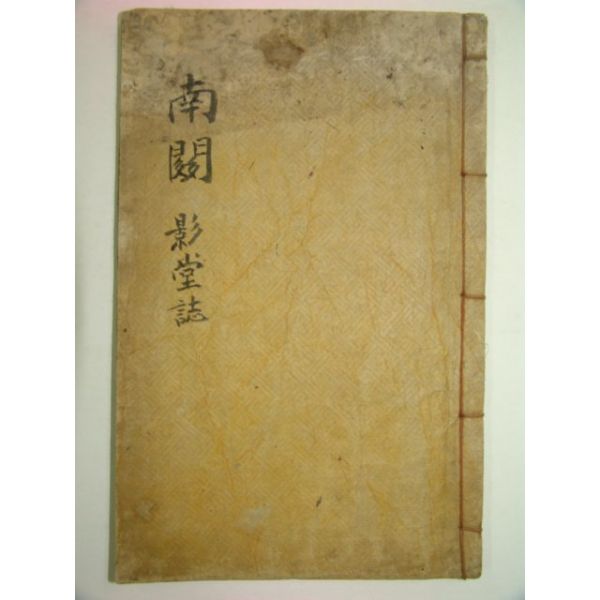 南閣影堂誌